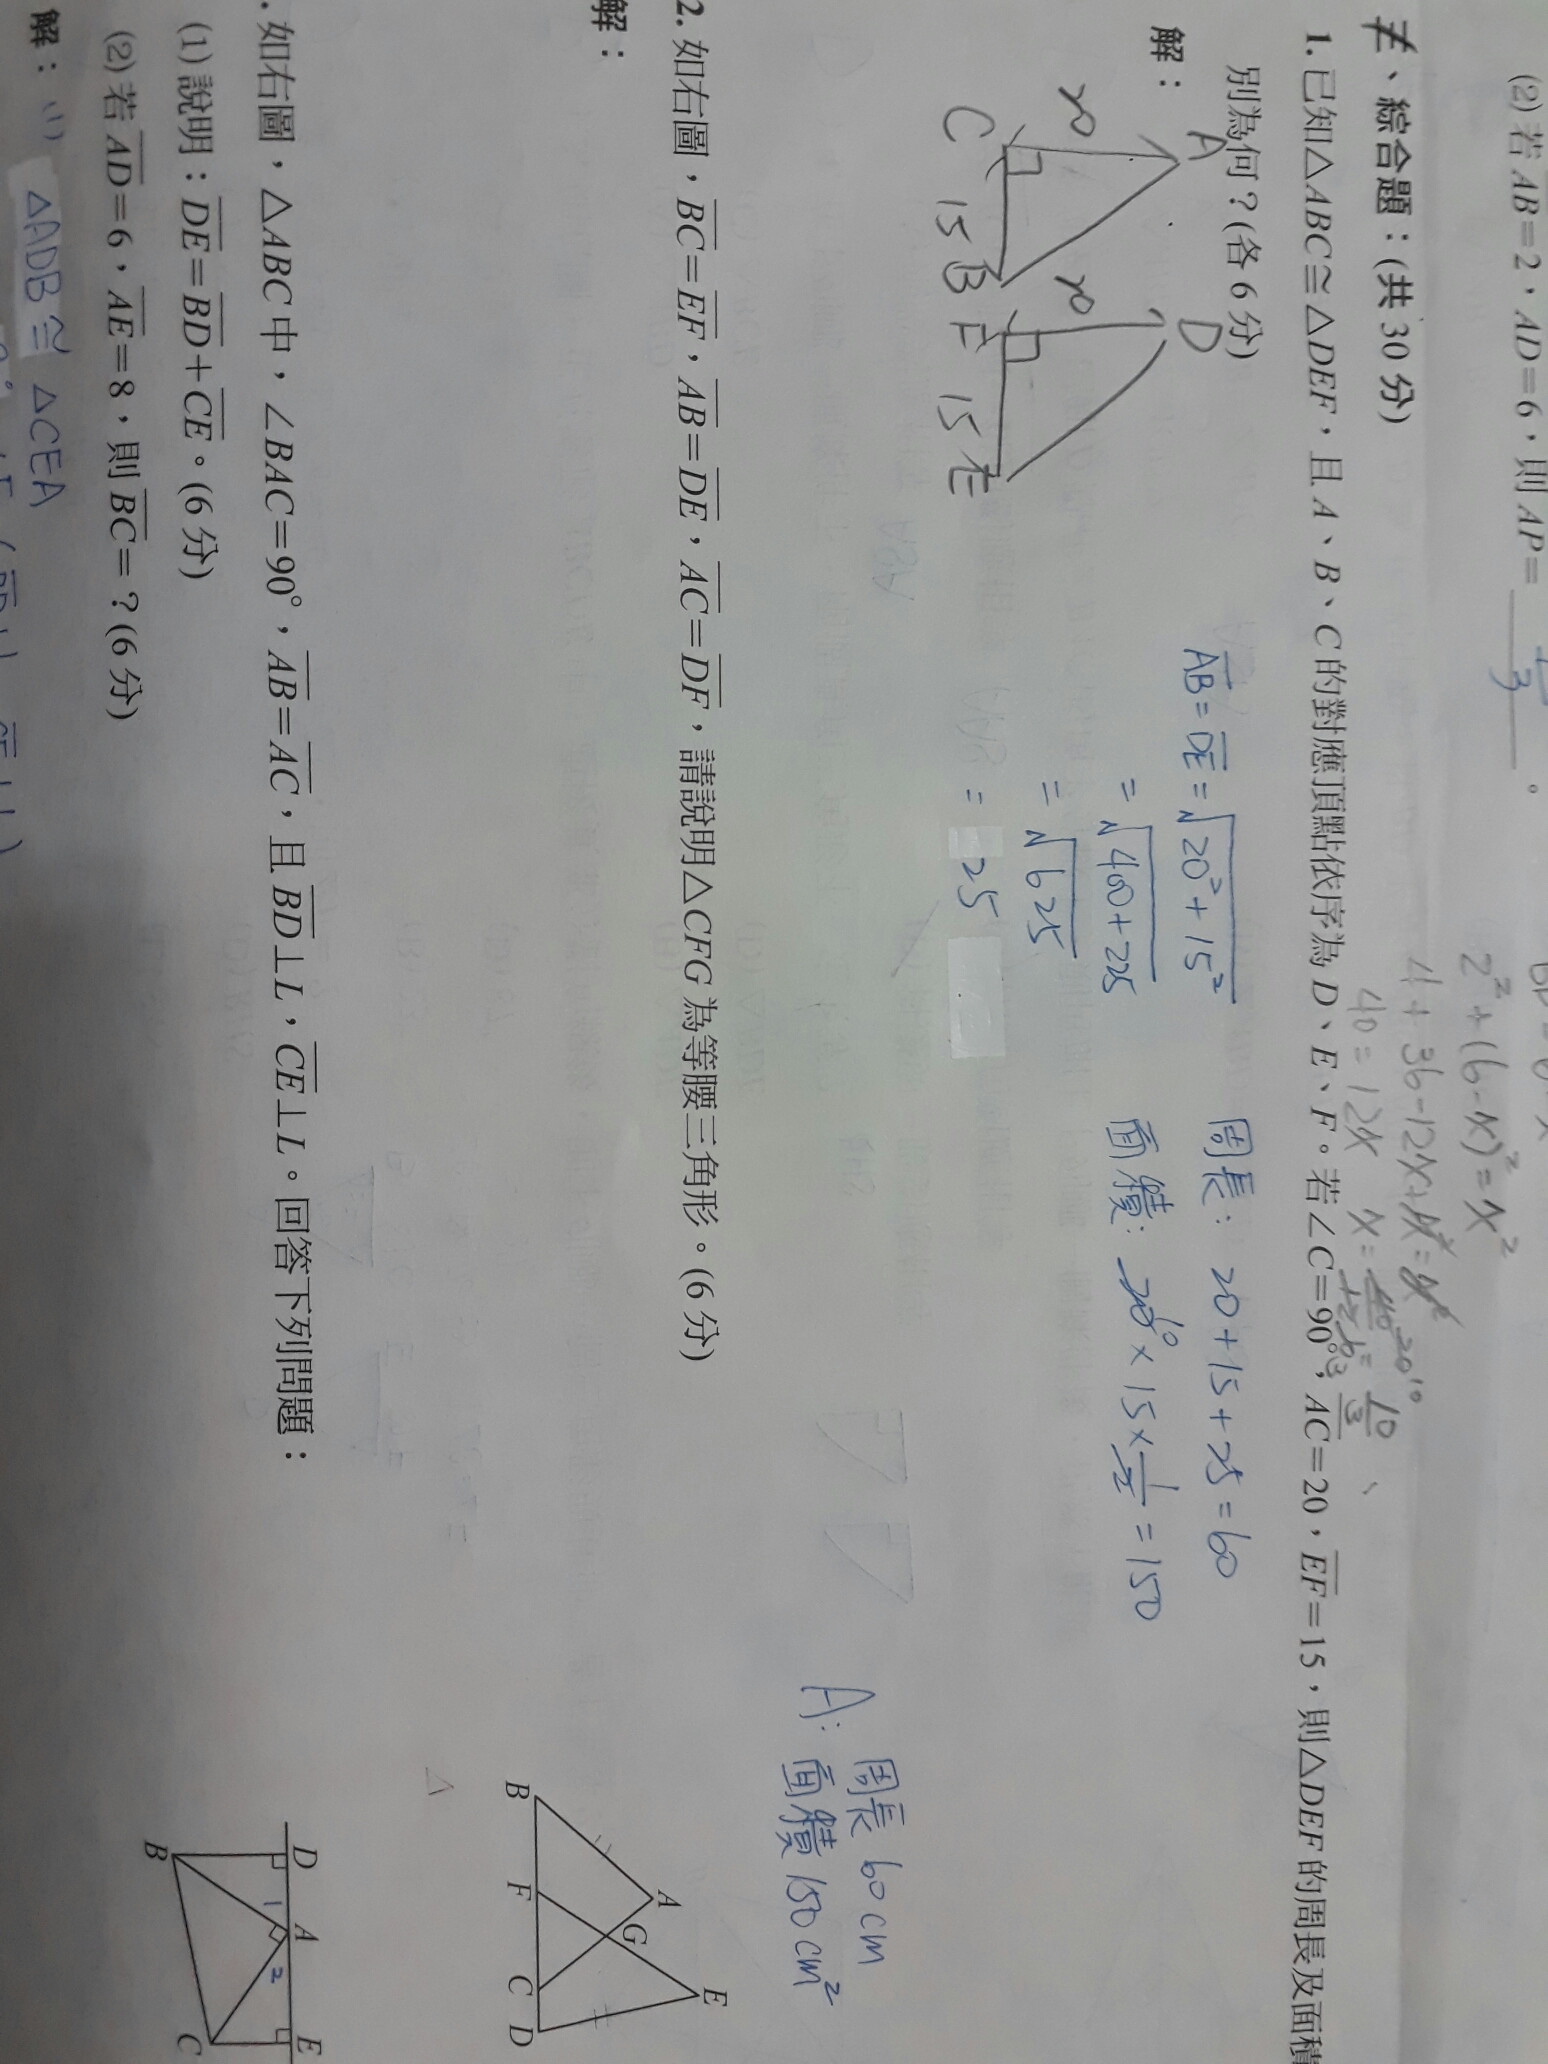 (2) 若 AB=2，AD=6，則 AP=
2²+(6-x)²=x²
4+36-12x+x²=x²
40=12x x= 10/3
、綜合題：(共 30 分)
1. 已知△ABC≅△DEF，且 A、B、C 的對應頂點依序為 D、E、F。若∠C=90°，AC=20，EF=15，則△DEF 的周長及面積
別為何？(各 6 分)
解：
A
D
20
20
C 15 B F 15 E
AB=DE=√20²+15²
=√400+225
=√625
=25
周長：20+15+25=60
面積：20 10 ×15×1/2=150
A：周長 60 cm
面積 150 cm²
2. 如右圖，BC=EF，AB=DE，AC=DF，請說明△CFG 為等腰三角形。(6 分)
解：
A
G
E
B
F
C
D
. 如右圖，△ABC 中，∠BAC=90°，AB=AC，且 BD⊥L，CE⊥L。回答下列問題：
(1) 說明：DE=BD+CE。(6 分)
(2) 若 AD=6，AE=8，則 BC=？(6 分)
D
A
E
1
2
B
C
解：(1) △ADB≅△CEA